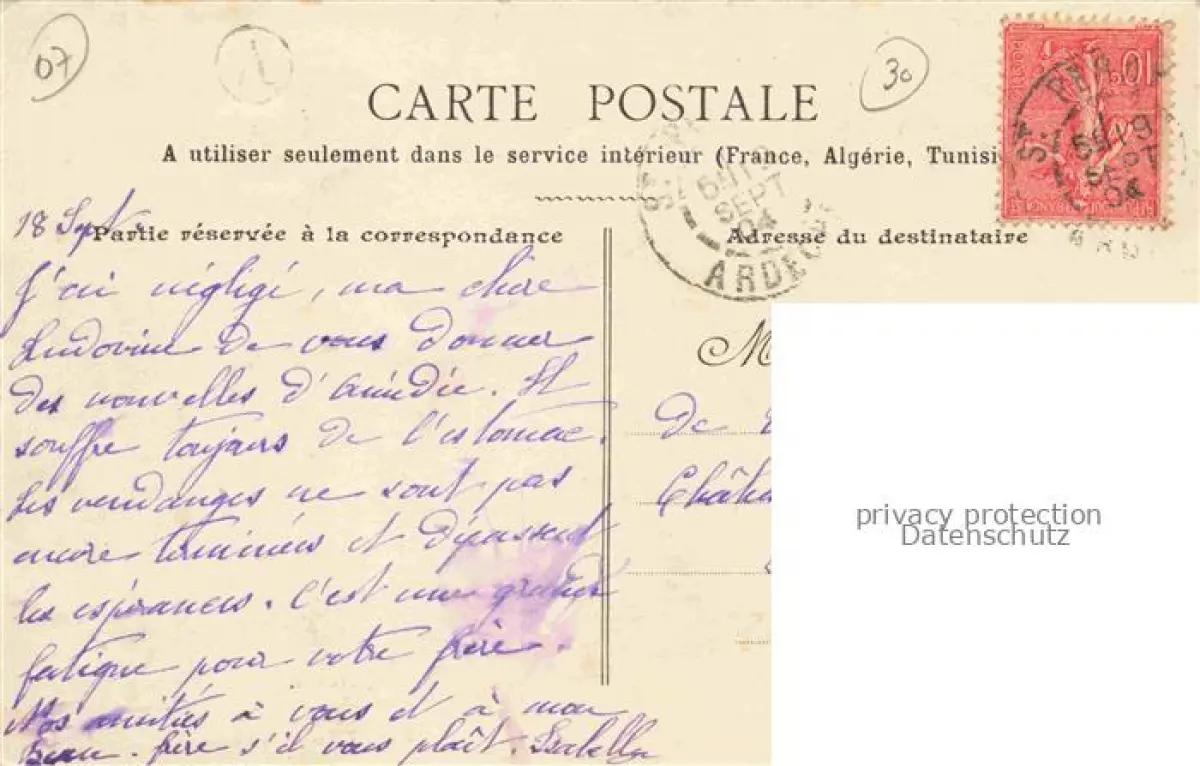 07
30
CARTE POSTALE
A utiliser seulement dans le service intérieur (France, Algérie, Tunisi
10
POSTE
ST PÉ
6H 19
SEPT
04
ARDEC
18 Sept
Partie réservée à la correspondance
Adresse du destinataire
J'ai négligé, ma chère
Ludovine de vous donner
des nouvelles d'Amédée. Il
souffre toujours de l'estomac.
Les vendanges ne sont pas
encore terminées et dépassent
les espérances. C'est une grande
fatigue pour votre frère.
Nos amitiés à vous et à mon
beau-frère s'il vous plaît. Isabelle
M
De
Châte
privacy protection
Datenschutz